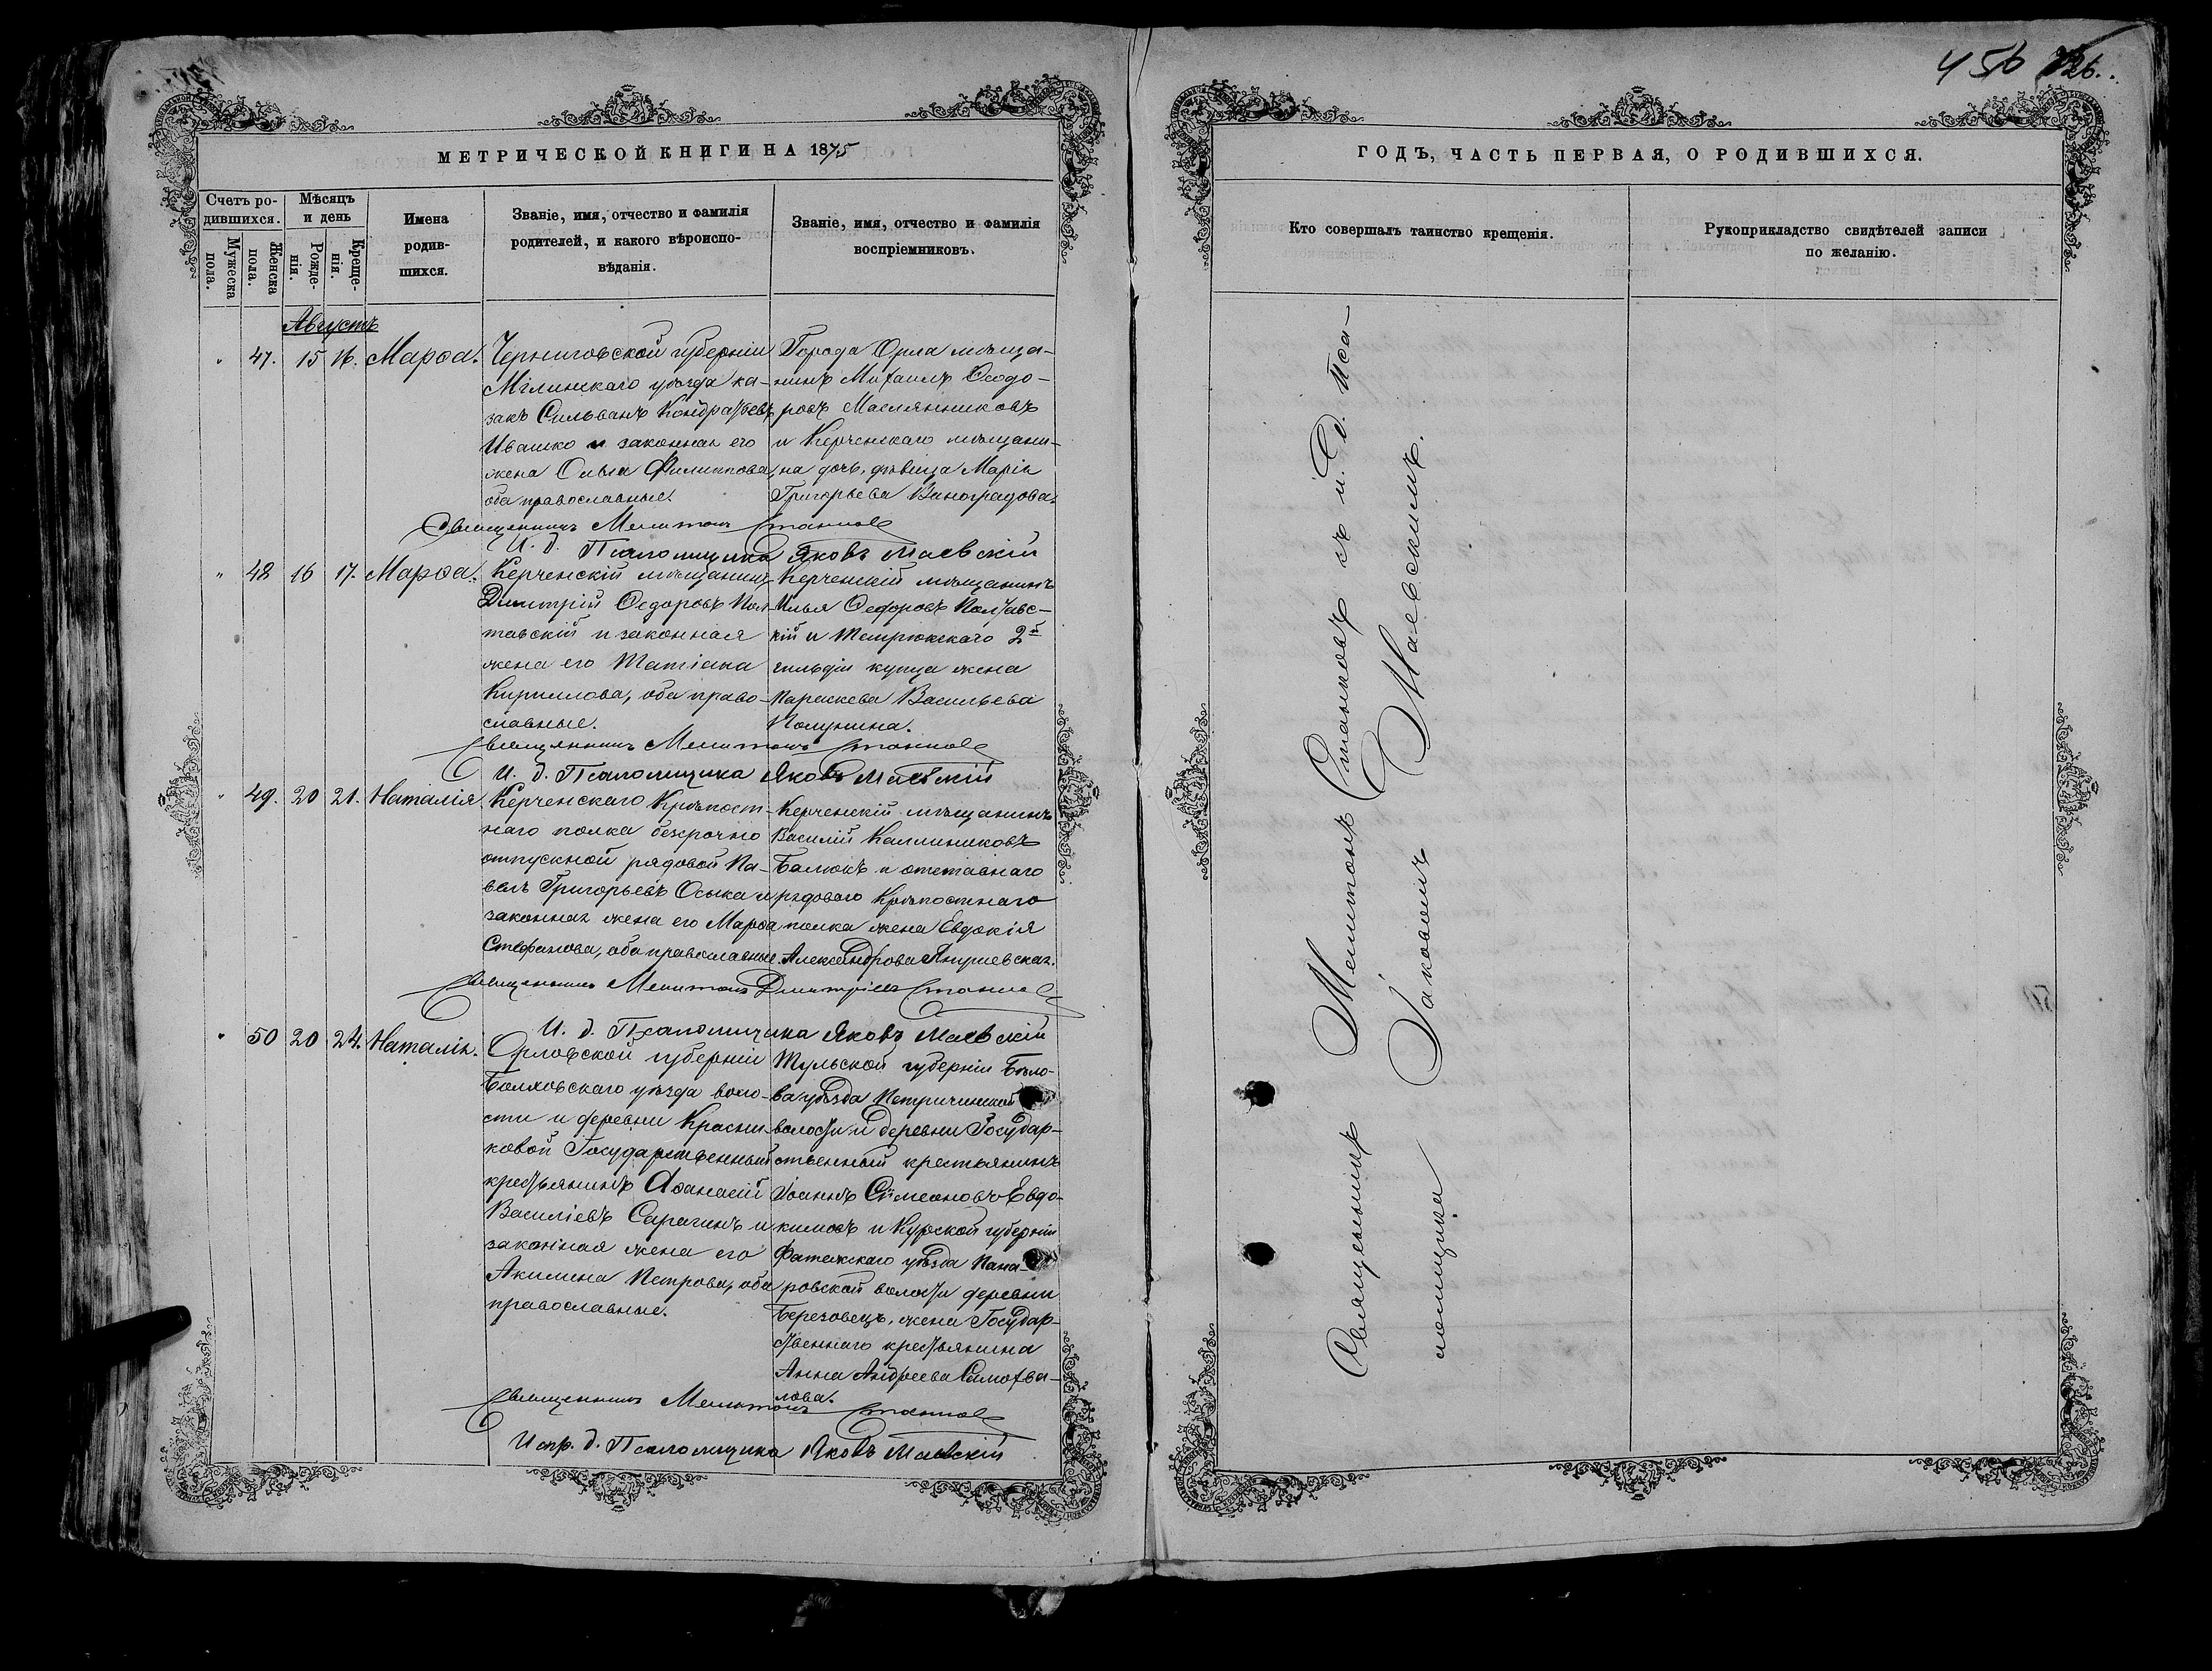 456 726.
МЕТРИЧЕСКОЙ КНИГИ НА 1875
Счетъ ро-
дившихся.
Мужеска
пола.
Женска
пола.
Мѣсяцъ
и день
Рожде-
нія.
Креще-
нія.
Имена
родив-
шихся.
Званіе, имя, отчество и фамилія
родителей, и какого вѣроиспо-
вѣданія.
Званіе, имя, отчество и фамилія
воспріемниковъ.
Августъ
" 47. 15 16. Марѳа.
Черниговской губерніи
Мглинскаго уѣзда ка-
закъ Сильванъ Кондратьевъ
Ивашко и законная его
жена Филиппова,
оба православные.
Города Орла мѣща-
нинъ Михаилъ Ѳеодо-
ровъ Маслянниковъ
и Керченскаго мѣщани-
на дочь, дѣвица Марія
Григорьева Виноградова.
Священникъ Мелитонъ Станковъ
И. д. Псаломщика Яковъ Маевскій
" 48 16 17. Марѳа.
Керченскій мѣщанинъ
Димитрій Ѳедоровъ Пол-
тавскій и законная
жена его Татіана
Кириллова, оба право-
славные.
Керченскій мѣщанинъ
Илья Ѳедоровъ Полтавс-
кій и Темрюкскаго 2й
гильдіи купца жена
Параскева Васильева
Полунина.
Священникъ Мелитонъ Станковъ
И. д. Псаломщика Яковъ Маевскій
" 49. 20 21. Наталія
Керченскаго Крѣпост-
наго полка безсрочно
отпускной рядовой Па-
велъ Григорьевъ Осыка и
законная жена его Марѳа
Стефанова, оба православные.
Керченскій мѣщанинъ
Василій Каллиниковъ
Балюкъ и отставнаго
рядоваго Крѣпостнаго
полка жена Евдокія
Александрова
Священникъ Мелитонъ Димитріевъ Станковъ
И. д. Псаломщика Яковъ Маевскій
" 50 20 24. Наталія.
Орловской губерніи
Болховскаго уѣзда воло-
сти и деревни Красни-
ковой Государственный
крестьянинъ Аѳанасій
Василіевъ Сарагинъ и
законная жена его
Акилина Петрова, оба
православные.
Тульской губерніи Бѣло-
ва уѣзда
волости и деревни Государ-
ственный крестьянинъ
Іоаннъ Симеоновъ Евдо-
кимовъ и Курской губерніи
Фатежскаго уѣзда
ровской волости деревни
Березовецъ, жена Государ-
ственнаго крестьянина
Анна Андреева Самохва-
лова.
Священникъ Мелитонъ Станковъ
Испр. д. Псаломщика Яковъ Маевскій
ГОДЪ, ЧАСТЬ ПЕРВАЯ, О РОДИВШИХСЯ.
Кто совершалъ таинство крещенія.
Рукоприкладство свидѣтелей записи
по желанію.
Священникъ Мелитонъ Станковъ съ и. д. Пса-
ломщика Іаковомъ Маевскимъ.